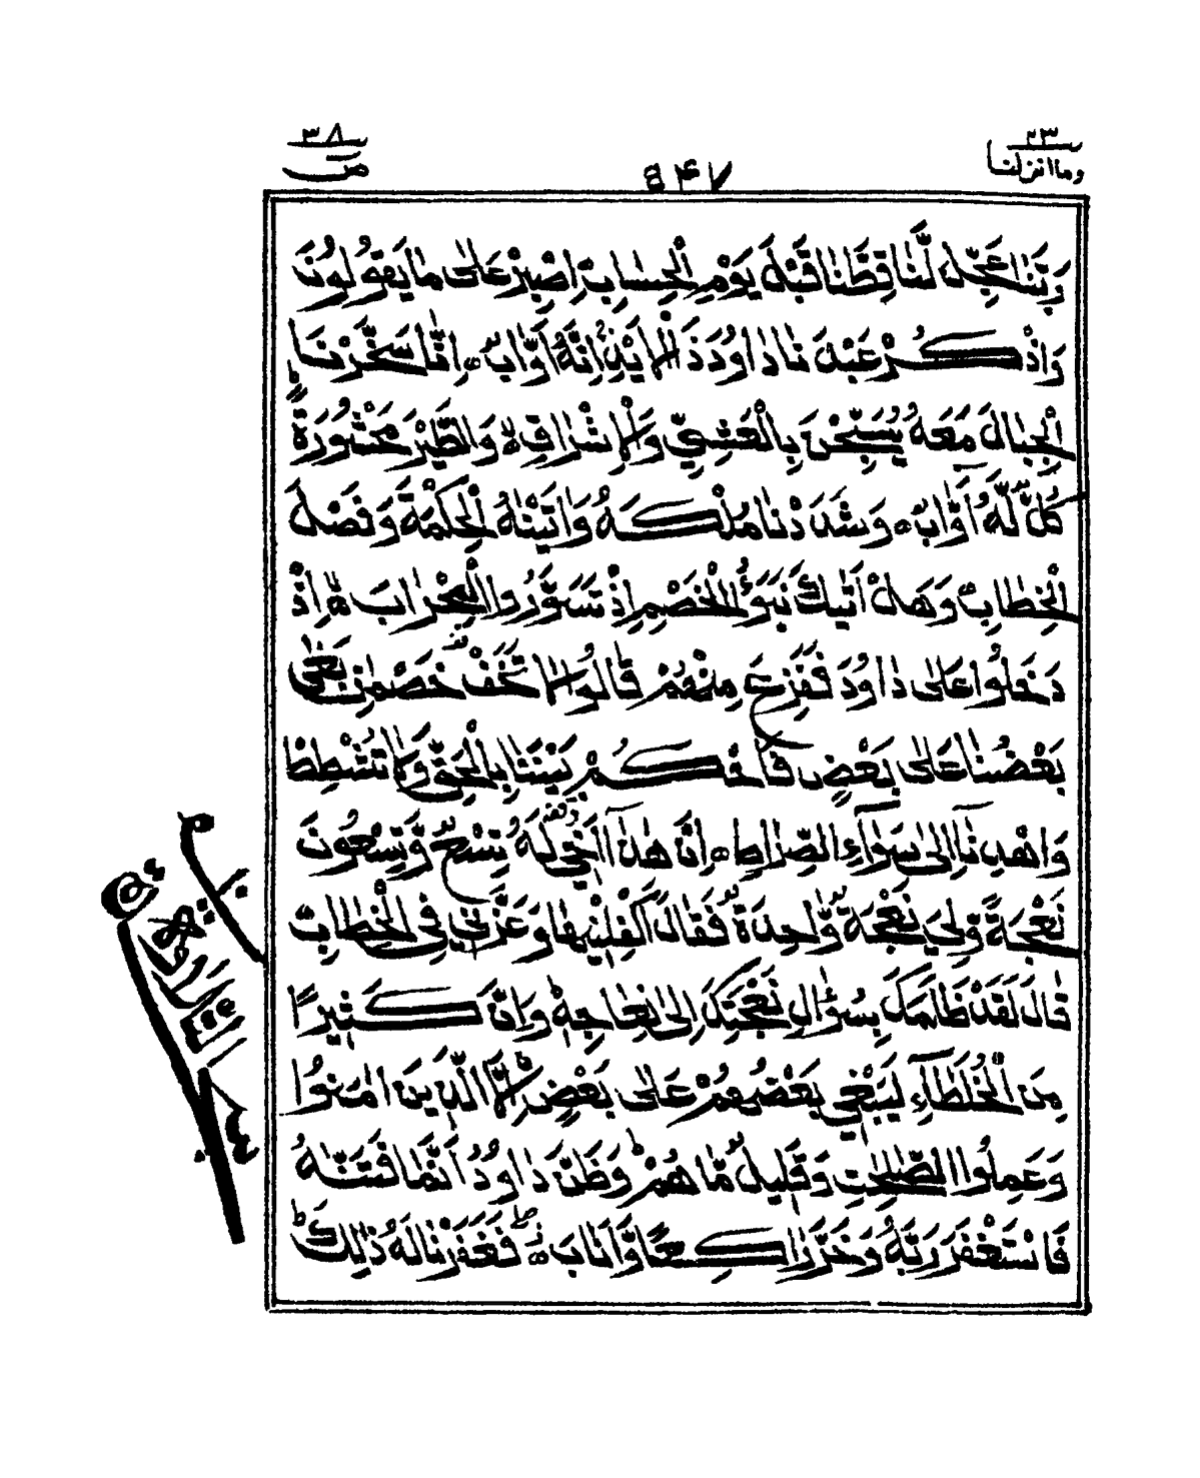 ٢٣
وما انزلنا
٥٤٧
٣٨
صٓ
رَبَّنَا عَجِّلْ لَّنَا قِطَّنَا قَبْلَ يَوْمِ الْحِسَابِ ۝ اِصْبِرْ عَلٰى مَا يَقُوْلُوْنَ
وَاذْكُرْ عَبْدَنَا دَاوٗدَ ذَا الْاَيْدِ اِنَّهٗٓ اَوَّابٌ ۝ اِنَّا سَخَّرْنَا
الْجِبَالَ مَعَهٗ يُسَبِّحْنَ بِالْعَشِيِّ وَالْاِشْرَاقِ ۝ وَالطَّيْرَ مَحْشُوْرَةً
كُلٌّ لَّهٗٓ اَوَّابٌ ۝ وَشَدَدْنَا مُلْكَهٗ وَاٰتَيْنٰهُ الْحِكْمَةَ وَفَصْلَ
الْخِطَابِ ۝ وَهَلْ اَتٰىكَ نَبَؤُا الْخَصْمِ اِذْ تَسَوَّرُوا الْمِحْرَابَ ۝ اِذْ
دَخَلُوْا عَلٰى دَاوٗدَ فَفَزِعَ مِنْهُمْ قَالُوْا لَا تَخَفْ خَصْمٰنِ بَغٰى
بَعْضُنَا عَلٰى بَعْضٍ فَاحْكُمْ بَيْنَنَا بِالْحَقِّ وَلَا تُشْطِطْ
وَاهْدِنَآ اِلٰى سَوَآءِ الصِّرَاطِ ۝ اِنَّ هٰذَآ اَخِيْ لَهٗ تِسْعٌ وَّتِسْعُوْنَ
نَعْجَةً وَّلِيَ نَعْجَةٌ وَّاحِدَةٌ فَقَالَ اَكْفِلْنِيْهَا وَعَزَّنِيْ فِي الْخِطَابِ ۝
قَالَ لَقَدْ ظَلَمَكَ بِسُؤَالِ نَعْجَتِكَ اِلٰى نِعَاجِهٖ وَاِنَّ كَثِيْرًا
مِّنَ الْخُلَطَآءِ لَيَبْغِيْ بَعْضُهُمْ عَلٰى بَعْضٍ اِلَّا الَّذِيْنَ اٰمَنُوْا
وَعَمِلُوا الصّٰلِحٰتِ وَقَلِيْلٌ مَّا هُمْ وَظَنَّ دَاوٗدُ اَنَّمَا فَتَنّٰهُ
فَاسْتَغْفَرَ رَبَّهٗ وَخَرَّ رَاكِعًا وَّاَنَابَ ۝ فَغَفَرْنَا لَهٗ ذٰلِكَ